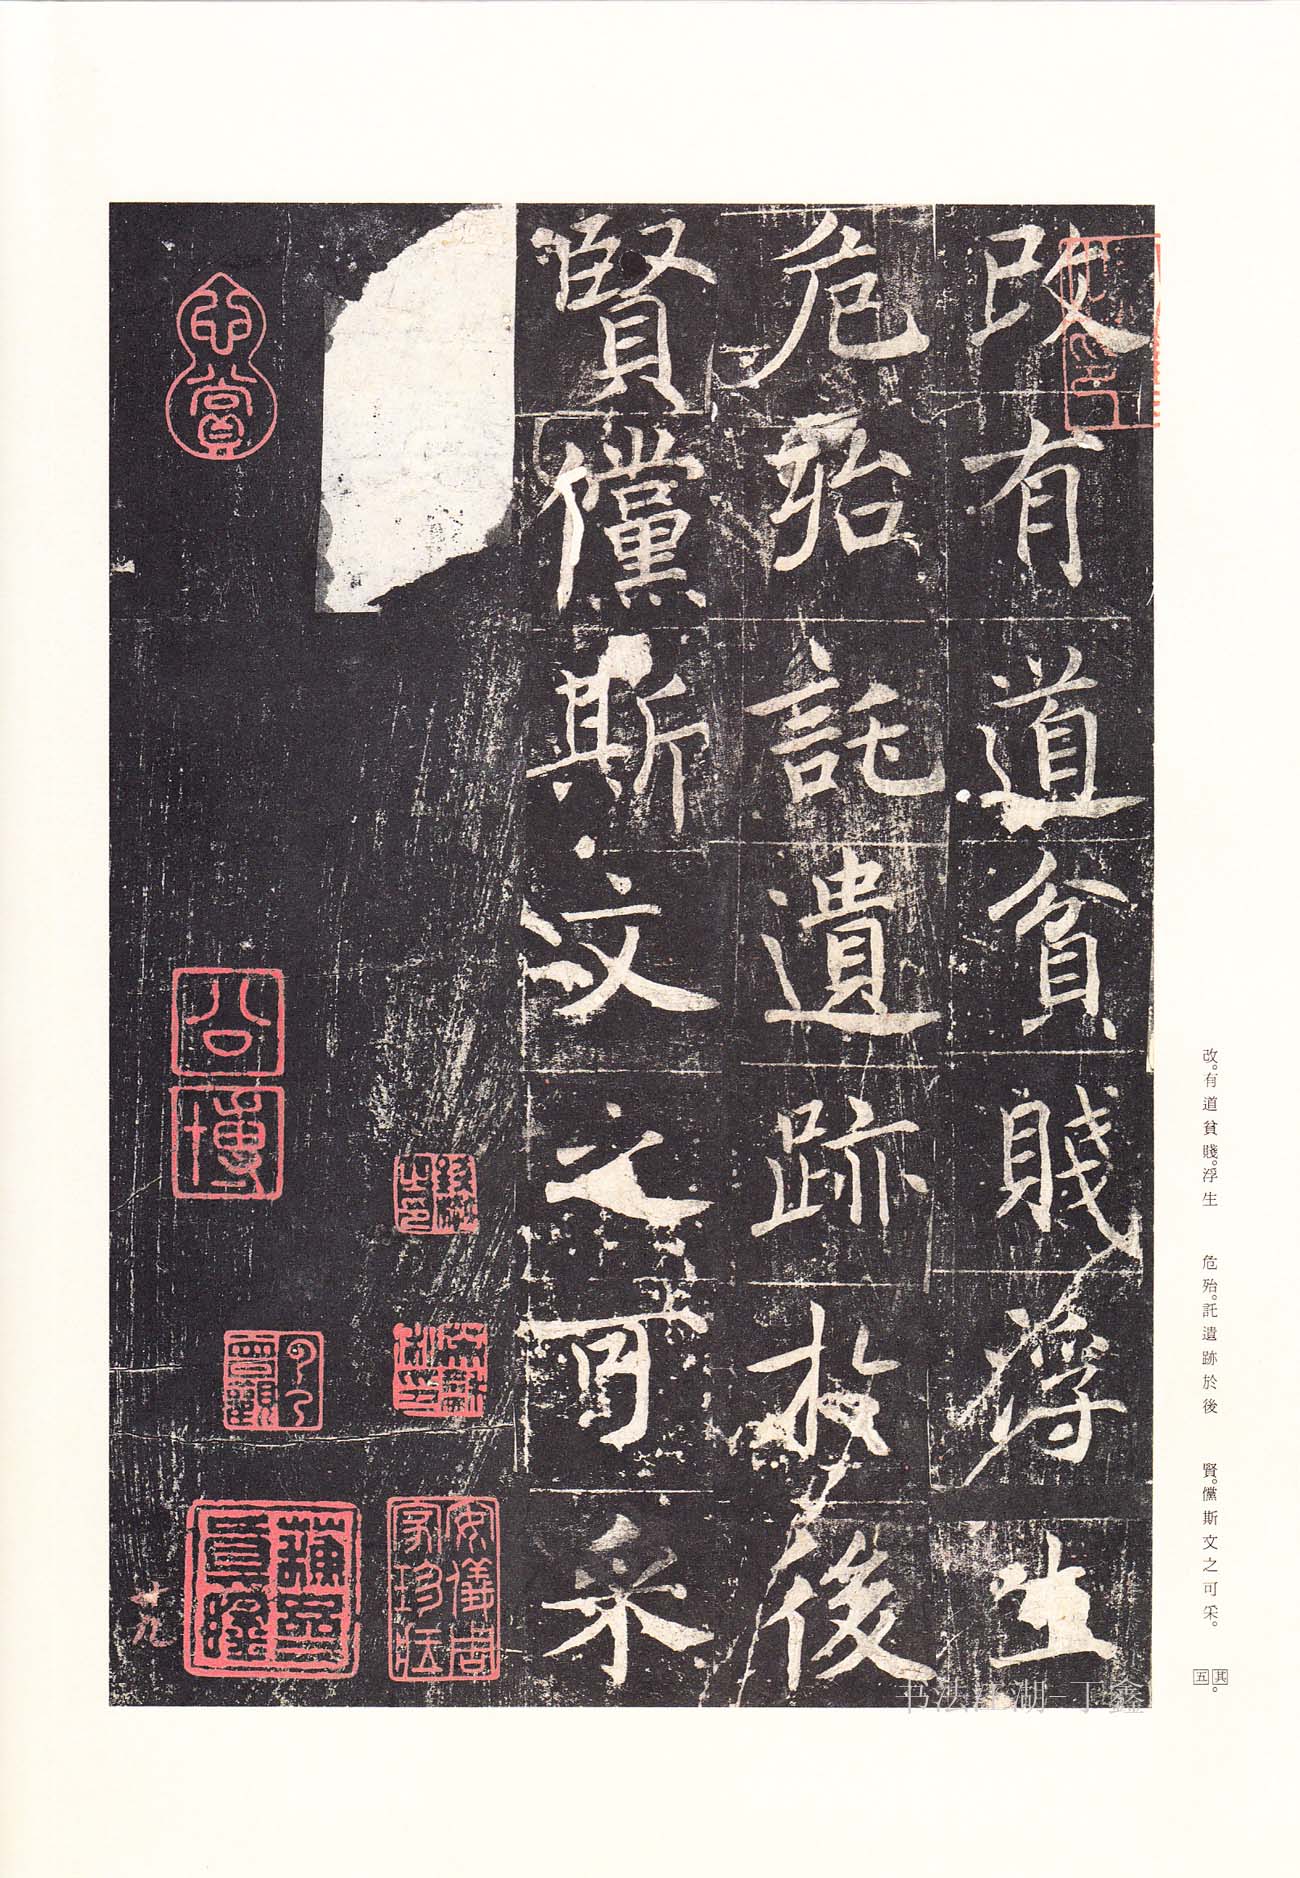 改有道貧賤浮生
危殆託遺跡於後
賢儻斯文之可采
心賞
公博
安儀周家珍藏
十九
改。有道貧賤。浮生　危殆。託遺跡於後　賢。儻斯文之可采。
其五。
书法江湖-丁鑫